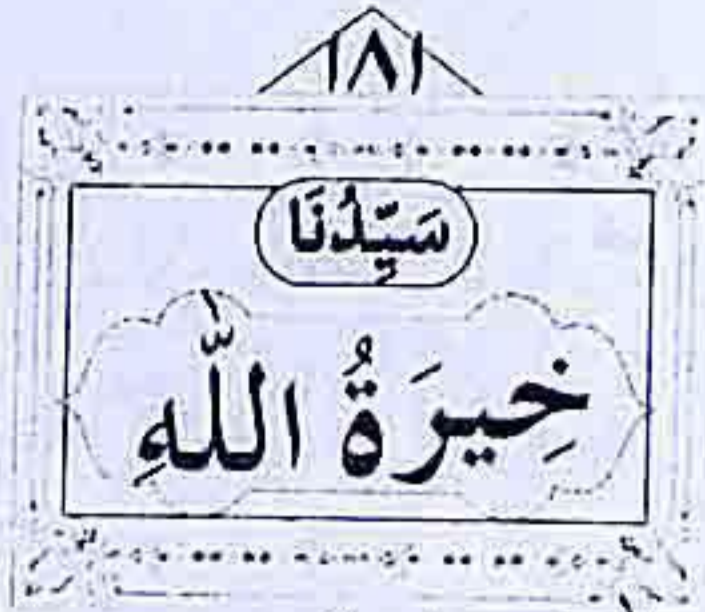 ١٨١
سَيِّدُنَا
خِيرَةُ اللّٰهِ